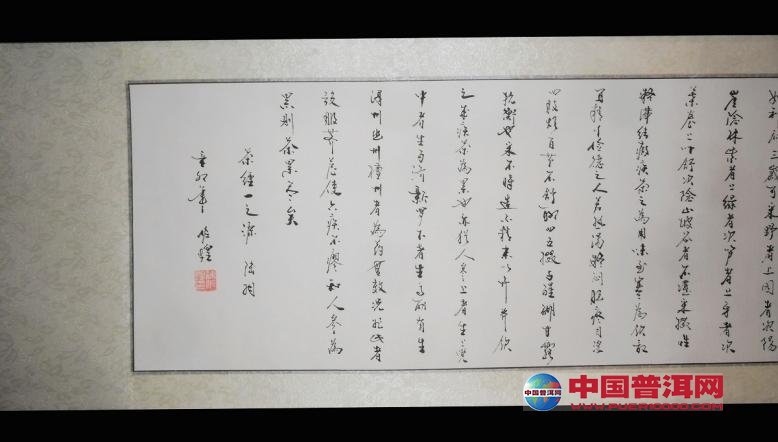 如种瓜三歲可采野者上园者次陽
崖陰林紫者上绿者次笋者上牙者次
葉卷上叶舒次陰山坡谷者不堪采掇性
凝滞结瘕疾茶之为用味至寒为饮最
宜精行俭德之人若热渴凝闷脑疼目涩
四肢烦百节不舒聊四五啜与醍醐甘露
抗衡也采不時造不精杂以卉莽饮
之成疾茶為累也亦犹人参上者生上党
中者生百济新罗下者生高丽有生
泽州幽州檀州者為药無效况非此者
設服荠苨使六疾不瘳知人参為
累则茶累尽矣
茶经一之源 陆羽
辛卯年
中国普洱网
WWW.PUERCN.COM